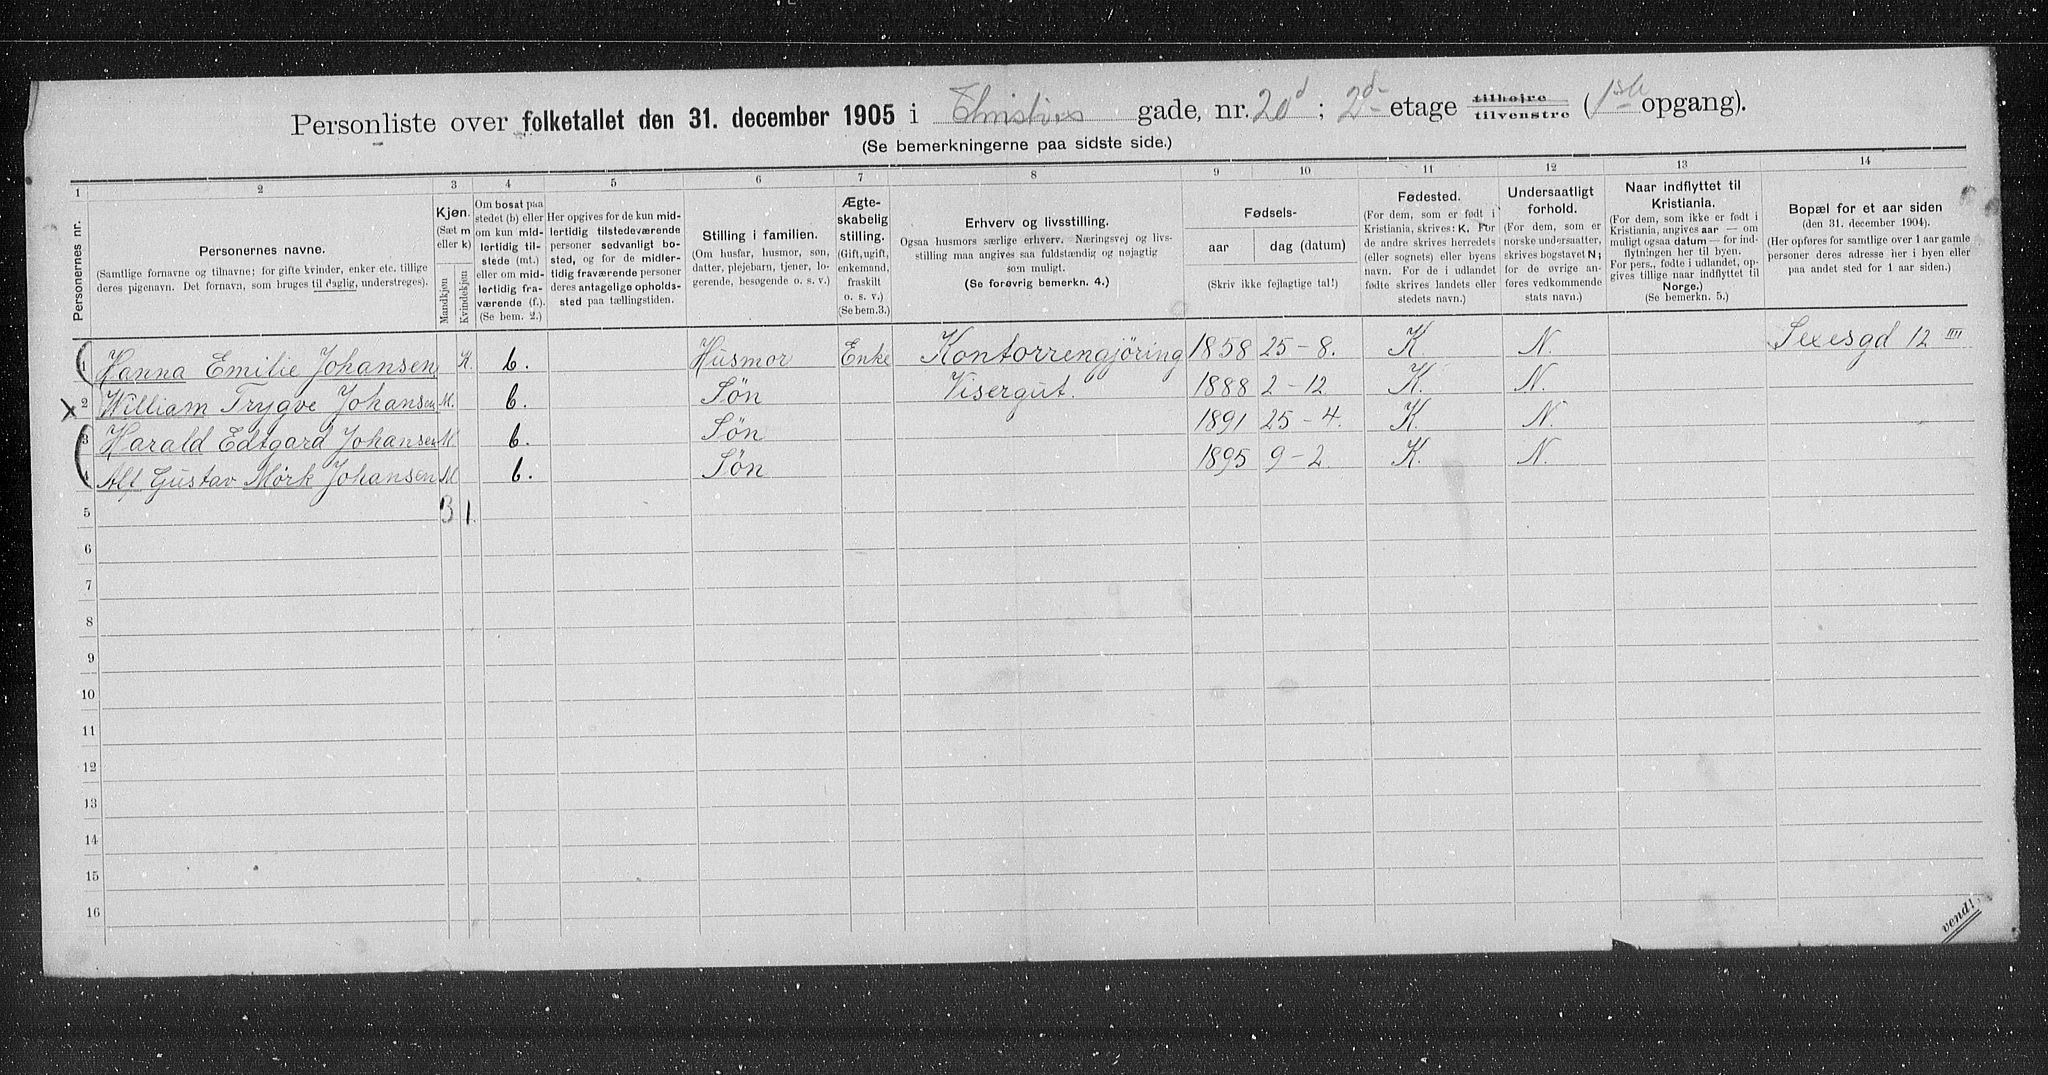 Personliste over folketallet den 31. december 1905 i Christies gade, nr. 20d ; 2d etage tilhøjre tilvenstre ( 1ste opgang).
(Se bemerkningerne paa sidste side.)
1 2 3 4 5 6 7 8 9 10 11 12 13 14
Personernes nr.
Personernes navne.
(Samtlige fornavne og tilnavne; for gifte kvinder, enker etc. tillige
deres pigenavn. Det fornavn, som bruges til daglig, understreges).
Kjøn.
(Sæt m
eller k)
Mandkjøn
Kvindekjøn
Om bosat paa
stedet (b) eller
om kun mid-
lertidig til-
stede (mt.)
eller om mid-
lertidig fra-
værende (f.).
(Se bem. 2.)
Her opgives for de kun mid-
lertidig tilstedeværende
personer sedvanligt bo-
sted, og for de midler-
tidig fraværende personer
deres antagelige opholds-
sted paa tællingstiden.
Stilling i familien.
(Om husfar, husmor, søn,
datter, plejebarn, tjener, lo-
gerende, besøgende o. s. v.)
Ægte-
skabelig
stilling.
(Gift, ugift,
enkemand,
fraskilt
o. s. v.)
(Se bem.3.)
Erhverv og livsstilling.
Ogsaa husmors særlige erhverv. Næringsvej og livs-
stilling maa angives saa fuldstændig og nøjagtig
som muligt.
(Se forøvrig bemerkn. 4.)
Fødsels-
aar dag (datum)
(Skriv ikke fejlagtige tal!)
Fødested.
(For dem, som er født i
Kristiania, skrives: K. For
de andre skrives herredets
(eller sognets) eller byens
navn. For de i udlandet
fødte skrives landets eller
stedets navn.)
Undersaatligt
forhold.
(For dem, som er
norske undersaatter,
skrives bogstavet N;
for de øvrige an-
føres vedkommende
stats navn.)
Naar indflyttet til
Kristiania.
(For dem, som ikke er født i
Kristiania, angives aar — om
muligt ogsaa datum — for ind-
flytningen her til byen.
For pers., fødte i udlandet, op-
gives tillige naar indflyttet til
Norge.)
(Se bemerkn. 5.)
Bopæl for et aar siden
(den 31. december 1904).
(Her opføres for samtlige over 1 aar gamle
personer deres adresse her i byen eller
paa andet sted for 1 aar siden.)
1 Hanna Emilie Johansen K. b. Husmor Enke Kontorrengjöring 1858 25-8. K N. Sexesgd 12 IIII
x 2 William Trygve Johansen M. b. Søn Visergut. 1888 2-12 K. N.
3 Harald Edtgard Johansen M b. Søn 1891 25-4. K. N.
4 Alf Gustav Mørk Johansen M b. Søn 1895 9-2. K. N.
5 3 1.
6
7
8
9
10
11
12
13
14
15
16
vend!